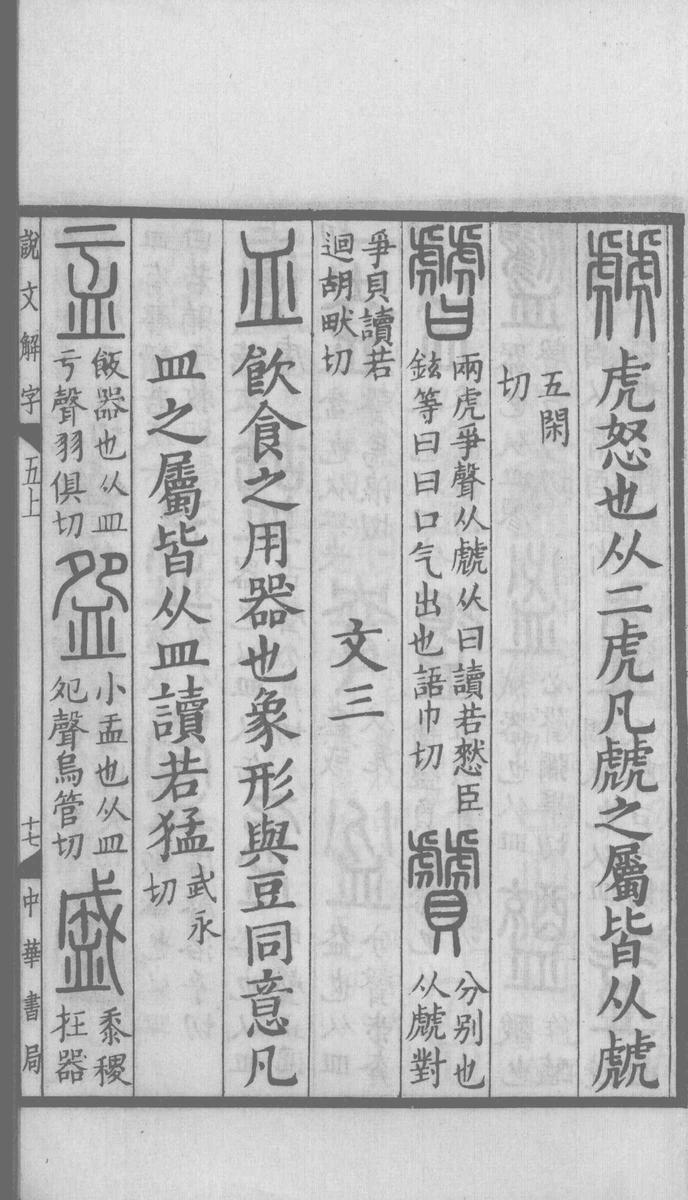 虤虎怒也从二虎凡虤之屬皆从虤
五閑
切
𧇽兩虎爭聲从虤从曰讀若憖臣
鉉等曰曰口气出也語巾切
贙分别也
从虤對
爭貝讀若
迴胡畎切
文三
皿飲食之用器也象形與豆同意凡
皿之屬皆从皿讀若猛武永
切
盂飯器也从皿
亏聲羽俱切
盌小盂也从皿
夗聲烏管切
盛黍稷
在器
說文解字
五上
十七
中華書局